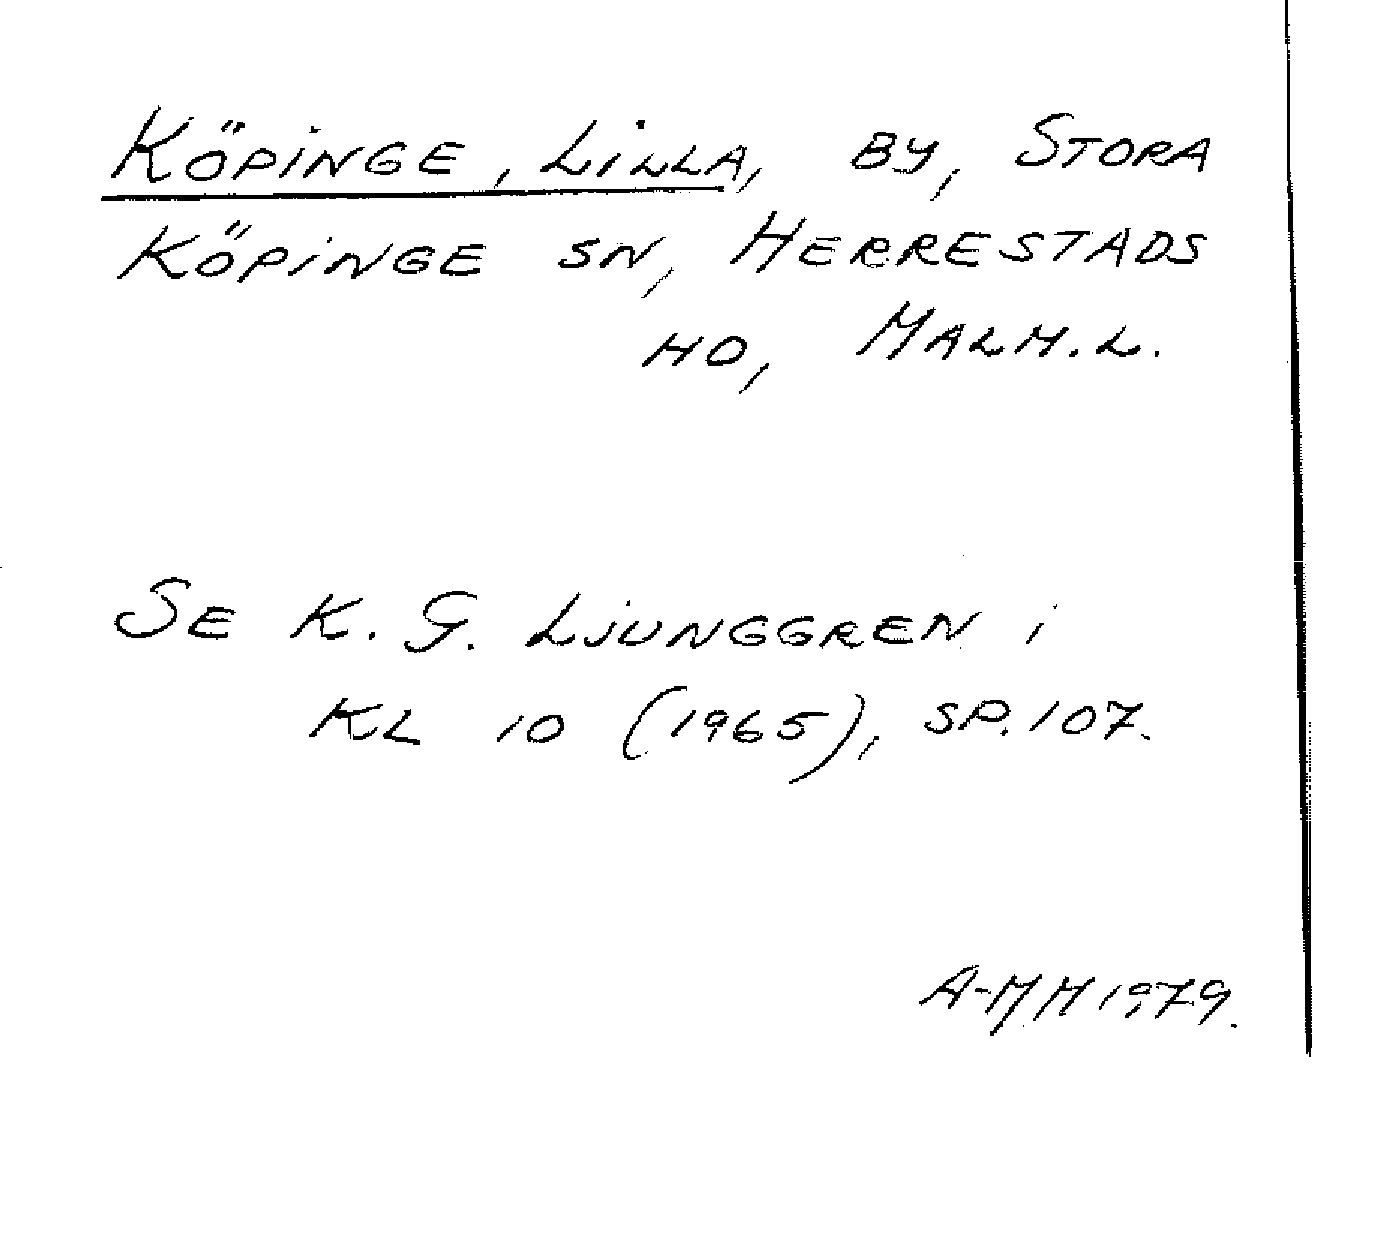 KÖPINGE, LILLA, BY, STORA
KÖPINGE SN, HERRESTADS
HD, MALM.L.
SE K. G. LJUNGGREN i
KL 10 (1965), SP. 107.
A-MH 1979.